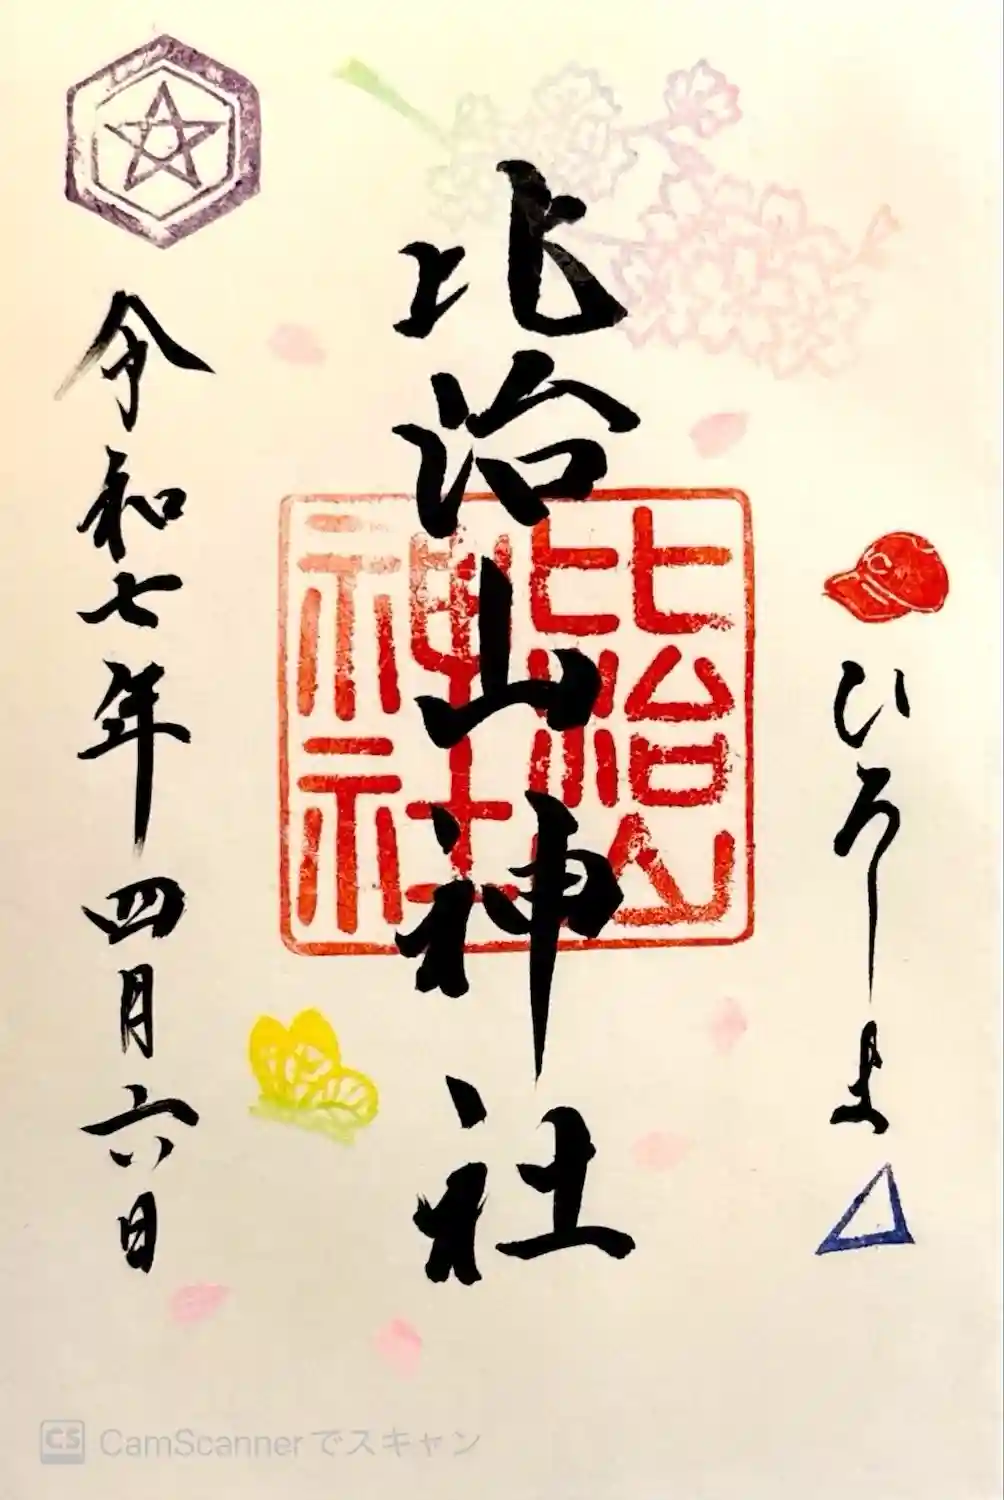 ひろしま
比治山神社
比治山神社
令和七年四月六日
CS CamScannerでスキャン